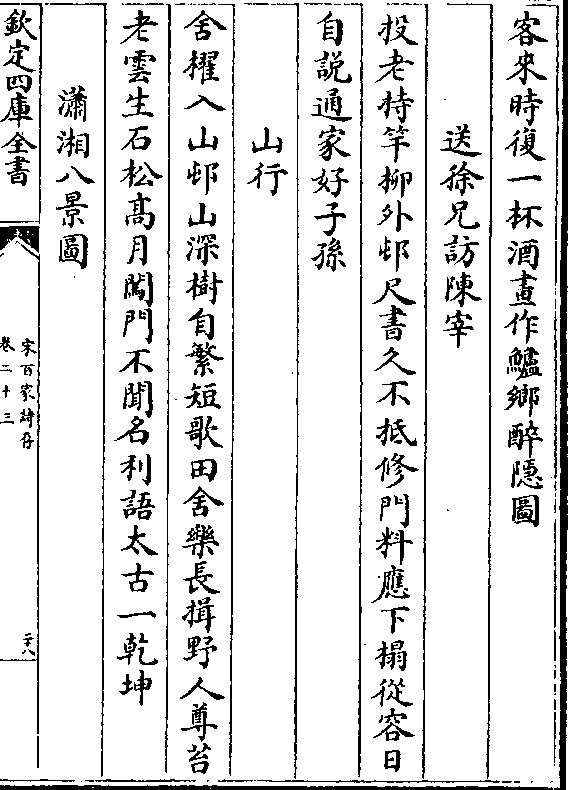 客來時復一杯酒畫作鱸鄉醉隠圖
送徐兄訪陳宰
投老持竿柳外邨尺書久不抵修門料應下榻從容日
自説通家好子孫
山行
舍櫂入山邨山深樹自繁短歌田舍樂長揖野人尊苔
老雲生石松髙月闖門不聞名利語太古一乾坤
瀟湘八景圖
欽定四庫全書
宋百家詩存
卷二十三
二十八